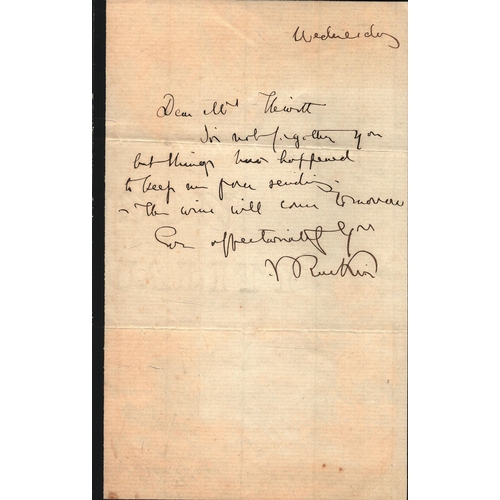 Wednesday
Dear Mrs Hewitt
I've not forgotten you
but things have happened
to keep me from sending
- The wine will come tomorrow
Ever affectionately Yrs
J Ruskin